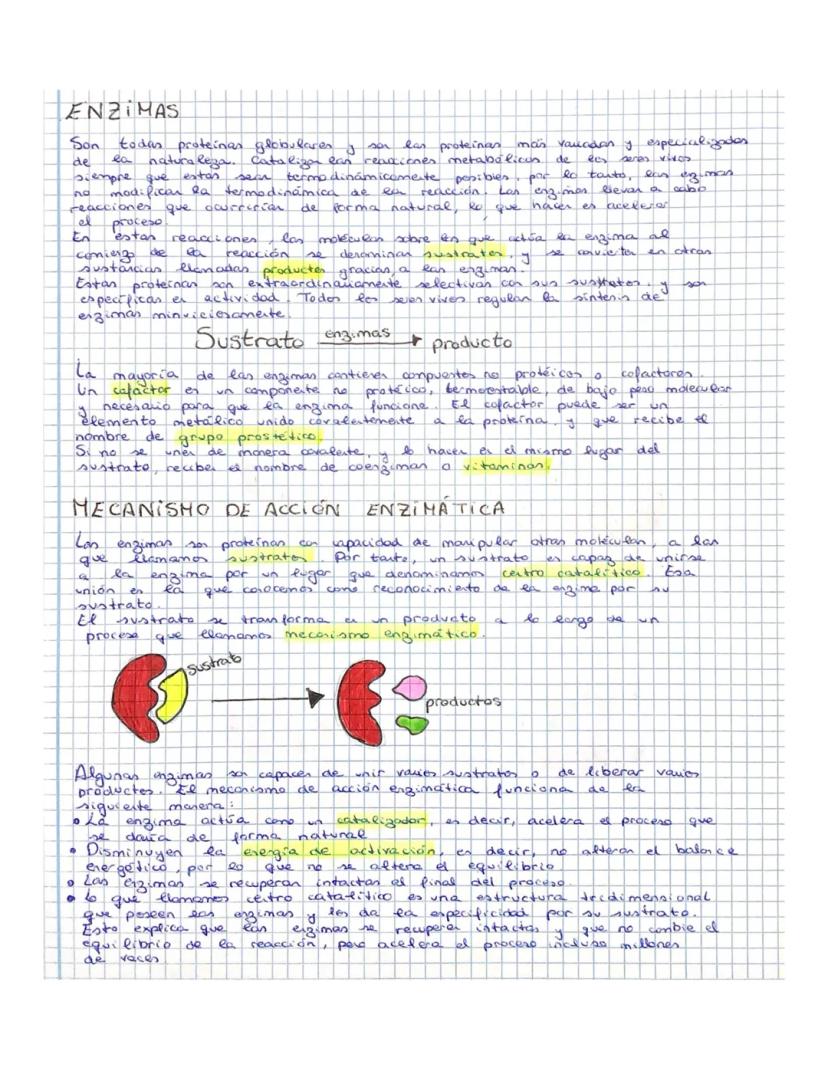 ENZIMAS
Son todas proteínas globulares y son las proteínas más variadas y especializadas
de la naturaleza. Catalizan las reacciones metabólicas de los seres vivos
siempre que estas sean termodinámicamente posibles, por lo tanto, las enzimas
no modifican la termodinámica de la reacción. Las enzimas llevan a cabo
reacciones que ocurrirían de forma natural, lo que hacen es acelerar
el proceso.
En estas reacciones, las moléculas sobre las que actúa la enzima al
comienzo de la reacción se denominan sustratos, y se convierten en otras
sustancias llamadas productos gracias a las enzimas.
Estas proteínas son extraordinariamente selectivas con sus sustratos, y son
específicas en actividad. Todos los seres vivos regulan la síntesis de
enzimas minuiciosamente.
Sustrato enzimas producto
La mayoría de las enzimas contienen compuestos no protéicos o cofactores.
Un cofactor es un componente no protéico, termoestable, de bajo peso molecular
y necesario para que la enzima funcione. El cofactor puede ser un
elemento metálico unido covalentemente a la proteína, y que recibe el
nombre de grupo prostético.
Si no se unen de manera covalente, y lo hacen en el mismo lugar del
sustrato, reciben el nombre de coenzimas o vitaminas.
MECANISMO DE ACCIÓN ENZIMÁTICA
Las enzimas son proteínas con capacidad de manipular otras moléculas, a las
que llamamos sustratos. Por tanto, un sustrato es capaz de unirse
a la enzima por un lugar que denominamos centro catalítico. Esa
unión es la que conocemos como reconocimiento de la enzima por su
sustrato.
El sustrato se transforma en un producto a lo largo de un
proceso que llamamos mecanismo enzimático.
sustrato
productos
Algunas enzimas son capaces de unir varios sustratos o de liberar varios
productos. El mecanismo de acción enzimática funciona de la
siguiente manera:
• La enzima actúa como un catalizador, es decir, acelera el proceso que
se daría de forma natural
• Disminuyen la energía de activación, es decir, no alteran el balance
energético, por lo que no se altera el equilibrio
• Las enzimas se recuperan intactas al final del proceso.
• Lo que llamamos centro catalítico es una estructura tridimensional
que poseen las enzimas y les da la especificidad por su sustrato.
Esto explica que las enzimas se recuperen intactas y que no cambie el
equilibrio de la reacción, pero acelera el proceso incluso millones
de veces.